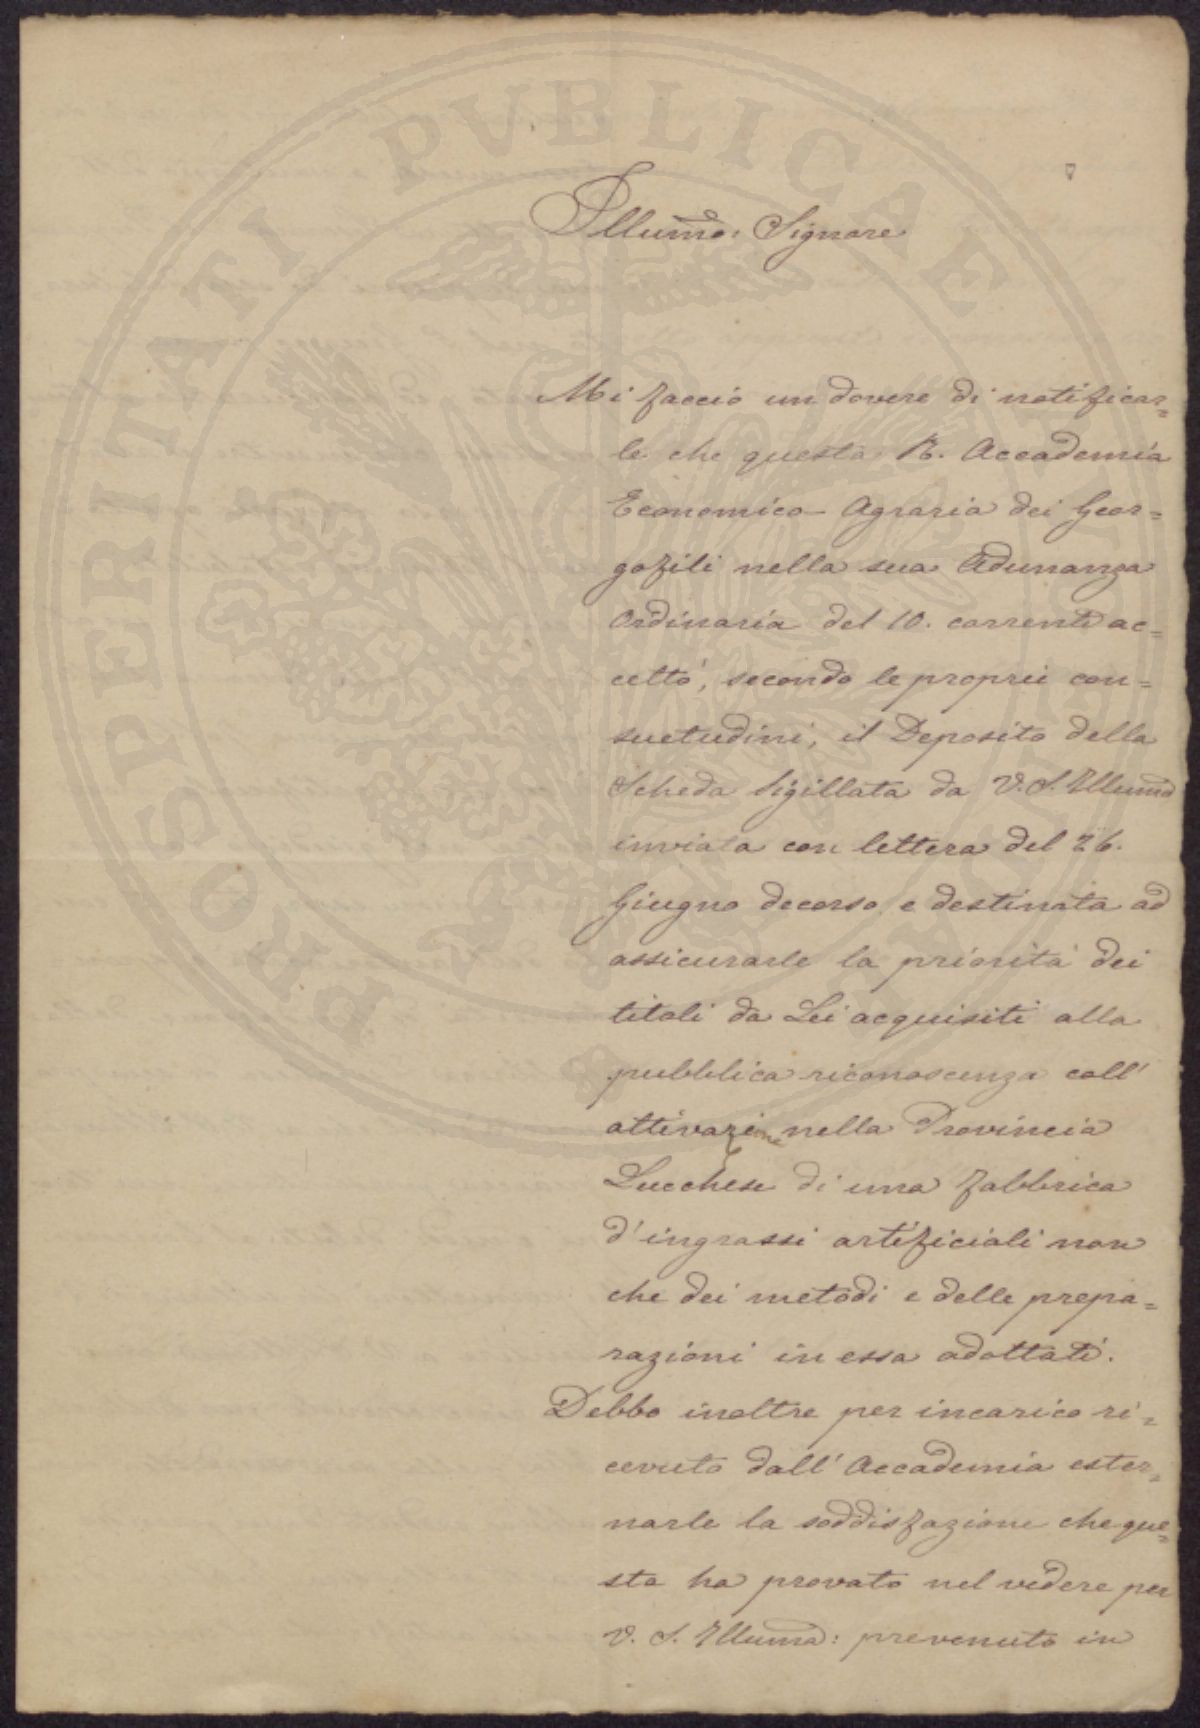 PROSPERITATI PUBLICAE AUGENDAE
Illumo: Signore
Mi faccio un dovere di notificar=
le che questa R. Accademia
Economico-Agraria dei Geor=
gofili nella sua Adunanza
Ordinaria del 10. corrente ac=
cettò, secondo le proprie con=
suetudini, il Deposito della
Scheda Sigillata da V. S. Illuma
inviata con lettera del 26.
Giugno decorso e destinata ad
assicurarle la priorità dei
titoli da Lei acquisiti alla
pubblica riconoscenza coll'
attivazione nella Provincia
Lucchese di una fabbrica
d'ingrassi artificiali non
che dei metodi e delle prepa=
razioni in essa adottati.
Debbo inoltre per incarico ri=
cevuto dall'Accademia ester=
narle la soddisfazione che que=
sta ha provato nel vedere per
V. S. Illuma: prevenuto in